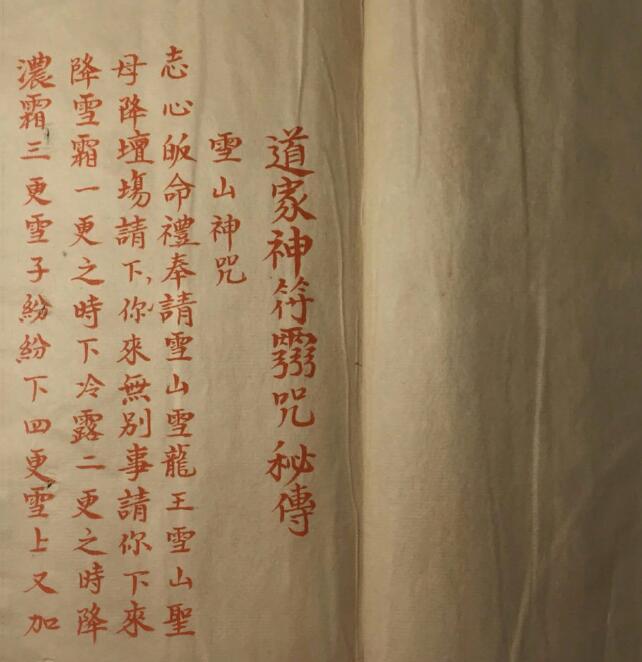 道家神符咒秘傳
雪山神咒
志心皈命禮奉請雪山雪龍王雪山聖
母降壇塲請下、你來無別事請你下來
降雪霜一更之時下冷露二更之時降
濃霜三更雪子紛紛下四更雪上又加